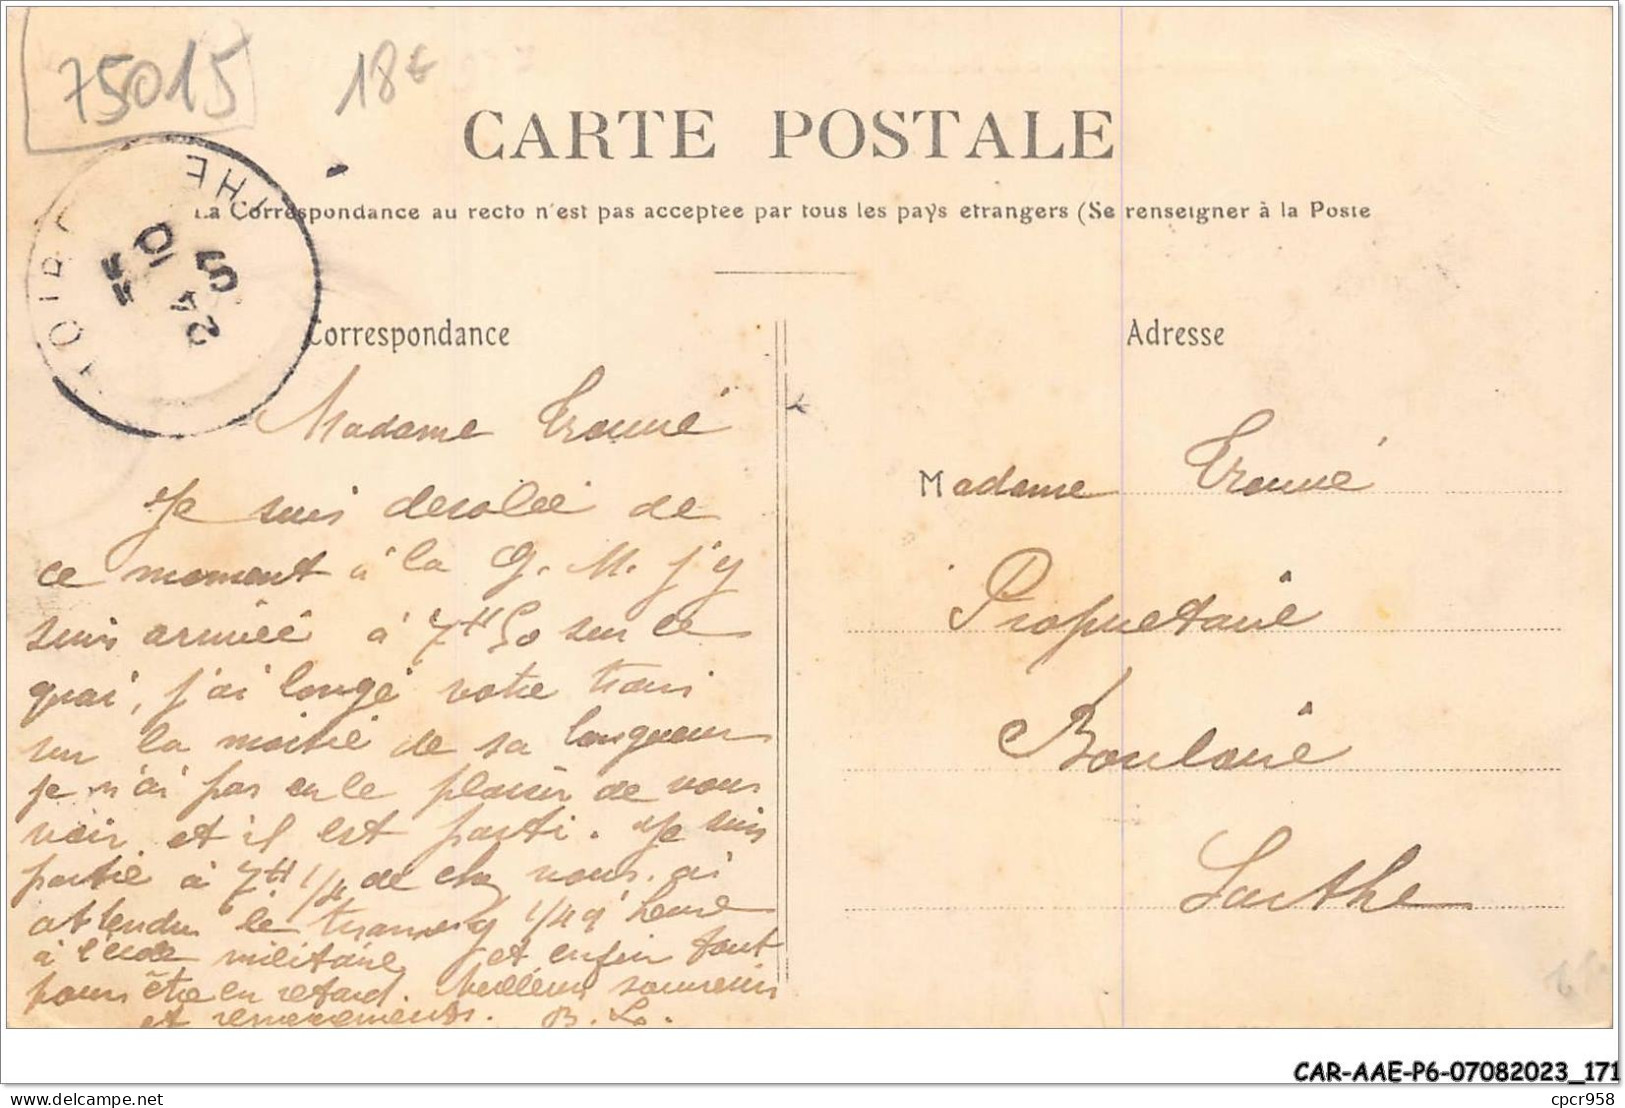 75015 18€
CARTE POSTALE
La Correspondance au recto n'est pas acceptee par tous les pays etrangers (Se renseigner à la Poste
5
24
Correspondance
Adresse
Madame Trouvé
Je suis desolée de
ce moment à la G. M. j'y
suis arrivée à 7H 50 sur ce
quai, j'ai longé votre train
sur la moitié de sa longueur
je n'ai pas eu le plaisir de vous
voir et il est parti. Je suis
partie à 7H 1/4 de chez vous. ai
attendu le tramway 1/4 d'heure
à l'école militaire et enfin tout
pour être en retard. Meilleurs souvenirs
et remerciements. B. L.
Madame Trouvé
Propriétaire
Bouloire
Sarthe
CAR-AAE-P6-07082023_171
cpcr958